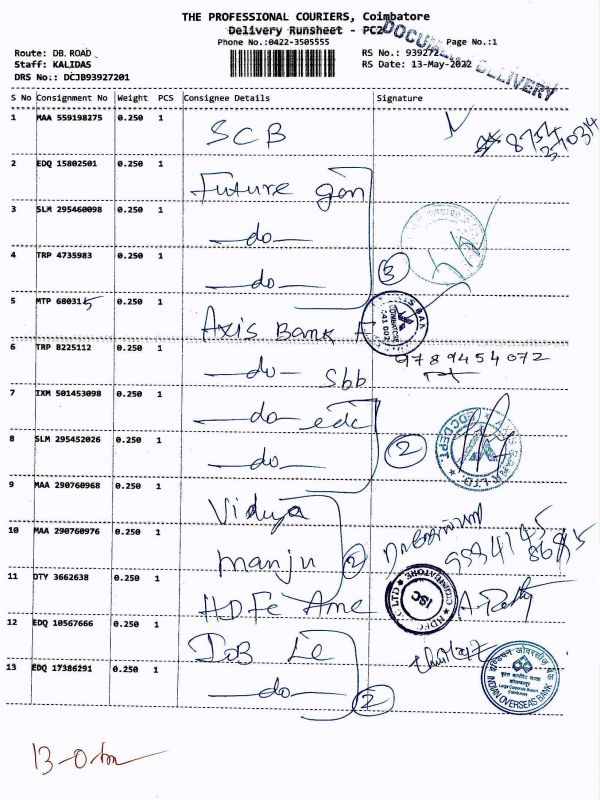 THE PROFESSIONAL COURIERS, Coimbatore
Delivery Runsheet - PC2
DOCUMENT DELIVERY
Phone No.:0422-3505555
Page No.:1
Route: DB. ROAD
RS No.: 939272
Staff: KALIDAS
RS Date: 13-May-2022
DRS No.: DCJB93927201
S No Consignment No Weight PCS Consignee Details Signature
1 MAA 559198275 0.250 1 SCB
2 EDQ 15802501 0.250 1 Future gen
3 SLM 295460098 0.250 1 —do—
4 TRP 4735983 0.250 1 —do— 3
5 MTP 680315 0.250 1 Axis Bank F
6 TRP 8225112 0.250 1 —do— Sbb 9789454072
7 IXM 501453098 0.250 1 —do— edc
8 SLM 295452026 0.250 1 —do— 2
9 MAA 290760968 0.250 1 Vidya
10 MAA 290760976 0.250 1 Manju 2
11 DTY 3662638 0.250 1 HDFC Ame
ISC
12 EDQ 10567666 0.250 1 IOB LC
13 EDQ 17386291 0.250 1 —do— 2
इण्डियन ओवरसीज़ बैंक
INDIAN OVERSEAS BANK